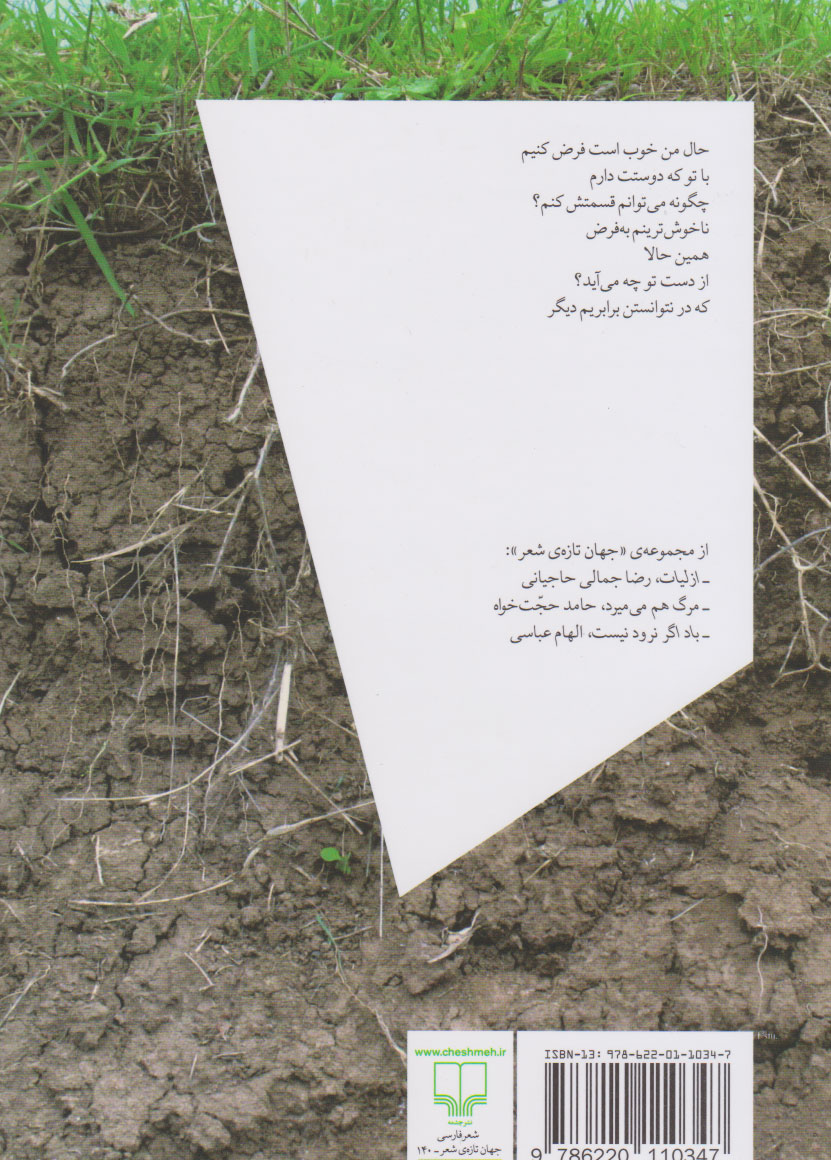 حال من خوب است فرض کنیم
با تو که دوستت دارم
چگونه می‌توانم قسمتش کنم؟
ناخوش‌ترینم به‌فرض
همین حالا
از دست تو چه می‌آید؟
که در نتوانستن برابریم دیگر
از مجموعه‌ی «جهان تازه‌ی شعر»:
ـ ازلیات، رضا جمالی حاجیانی
ـ مرگ هم می‌میرد، حامد حجّت‌خواه
ـ باد اگر نرود نیست، الهام عباسی
www.cheshmeh.ir
نشرچشمه
شعر فارسی
جهان تازه‌ی شعر ـ ۱۴۰
ISBN-13: 978-622-01-1034-7
9 786220 110347